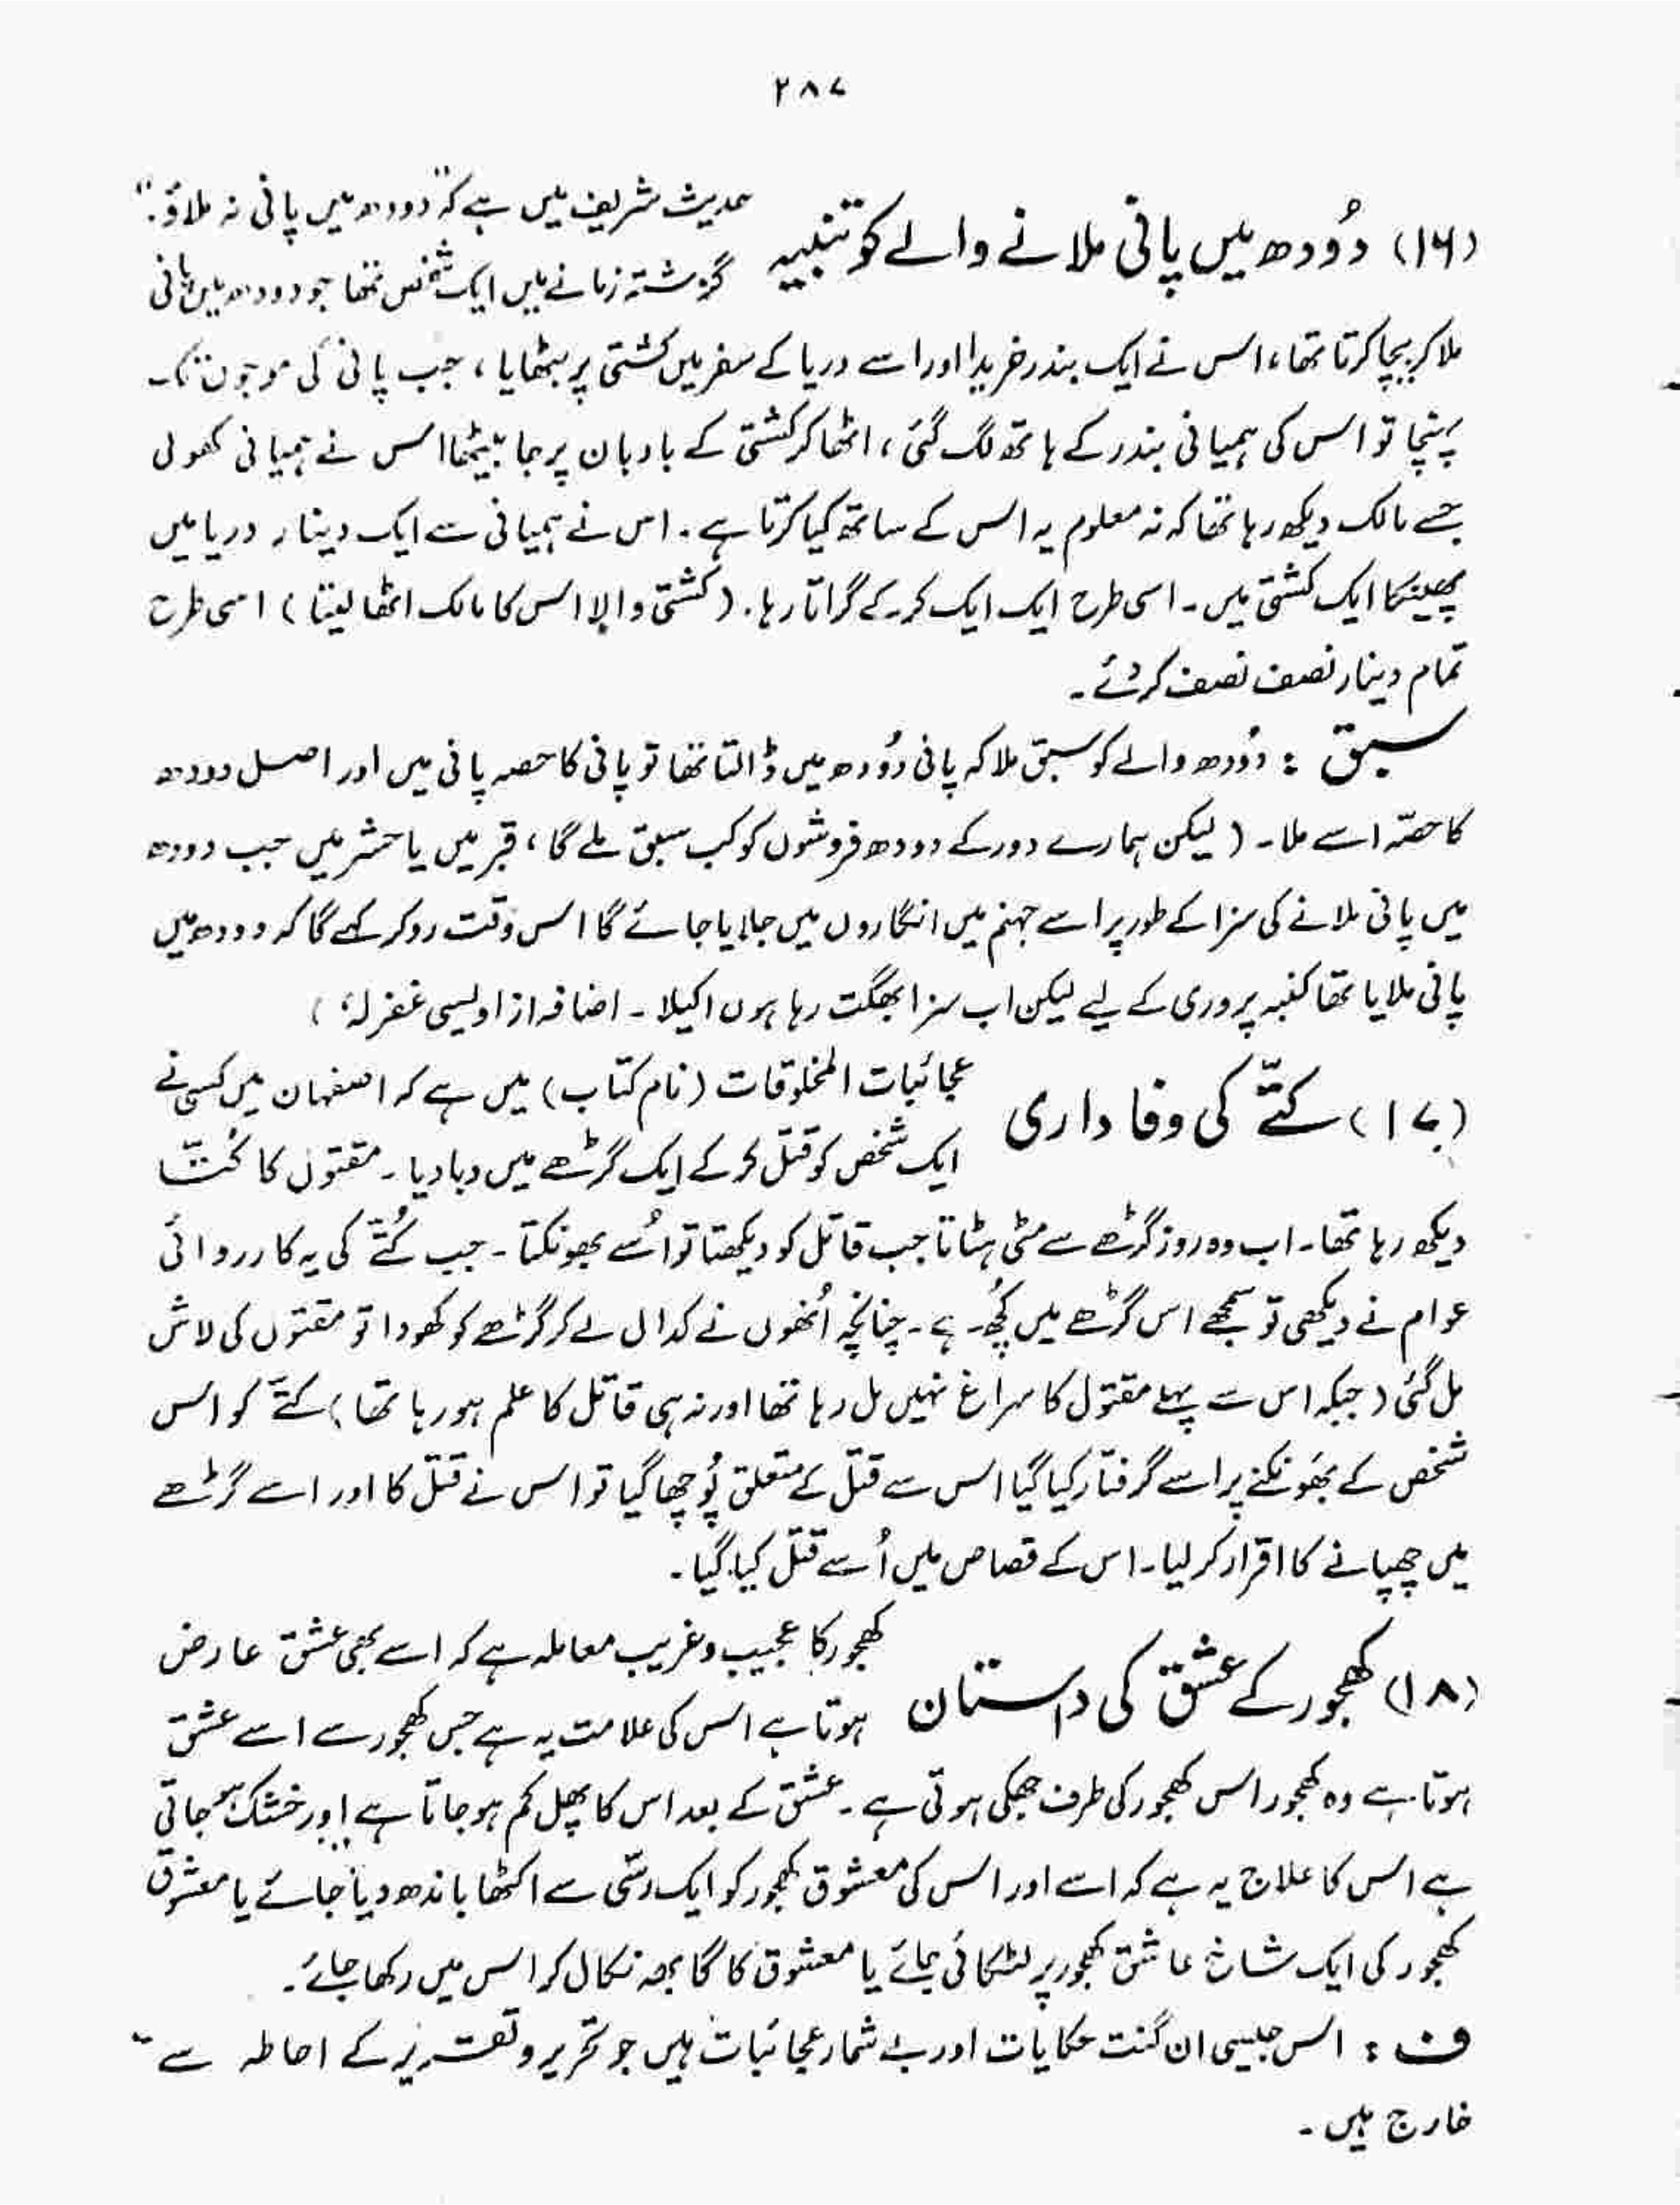 ۲۸۷
(۱۶) دُودھ میں پانی ملانے والے کو تنبیہ
حدیث شریف میں ہے کہ "دودھ میں پانی نہ ملاؤ."
گزشتہ زمانے میں ایک شخص تھا جو دودھ میں پانی
ملا کر بیچا کرتا تھا، اس نے ایک بندر خریدا اور اسے دریا کے سفر میں کشتی پر بٹھایا، جب پانی کی موجوں تک
پہنچا تو اس کی ہمیانی بندر کے ہاتھ لگ گئی، اٹھا کر کشتی کے بادبان پر جا بیٹھا اس نے ہمیانی کھولی
جسے مالک دیکھ رہا تھا کہ نہ معلوم یہ اس کے ساتھ کیا کرتا ہے۔ اس نے ہمیانی سے ایک دینار دریا میں
پھینکا ایک کشتی میں۔ اسی طرح ایک ایک کر کے گراتا رہا۔ (کشتی والا اس کا مالک اٹھا لیتا) اسی طرح
تمام دینار نصف نصف کر دئے۔
سبق : دُودھ والے کو سبق ملا کہ پانی دُودھ میں ڈالتا تھا تو پانی کا حصہ پانی میں اور اصل دودھ
کا حصّہ اسے ملا۔ (لیکن ہمارے دور کے دودھ فروشوں کو کب سبق ملے گا، قبر میں یا حشر میں جب دودھ
میں پانی ملانے کی سزا کے طور پر اسے جہنم میں انگاروں میں جلایا جائے گا اس وقت رو کر کہے گا کہ دودھ میں
پانی ملایا تھا کنبہ پروری کے لیے لیکن اب سزا بھگت رہا ہوں اکیلا۔ اضافہ از اویسی غفرلہٗ)
(۱۷) کتّے کی وفاداری
عجائبات المخلوقات (نام کتاب) میں ہے کہ اصفہان میں کسی نے
ایک شخص کو قتل کر کے ایک گڑھے میں دبا دیا۔ مقتول کا کُتّا
دیکھ رہا تھا۔ اب وہ روز گڑھے سے مٹی ہٹاتا جب قاتل کو دیکھتا تو اُسے بھونکتا۔ جب کُتّے کی یہ کارروائی
عوام نے دیکھی تو سمجھے اس گڑھے میں کُچھ ہے۔ چنانچہ اُنھوں نے کدال لے کر گڑھے کو کھودا تو مقتول کی لاش
مل گئی (جبکہ اس سے پہلے مقتول کا سراغ نہیں مل رہا تھا اور نہ ہی قاتل کا علم ہو رہا تھا) کتّے کو اس
شخص کے بھونکنے پر اسے گرفتار کیا گیا اس سے قتل کے متعلق پُوچھا گیا تو اس نے قتل کا اور اسے گڑھے
میں چھپانے کا اقرار کر لیا۔ اس کے قصاص میں اُسے قتل کیا گیا۔
(۱۸) کھجور کے عشق کی داستان
کھجور کا عجیب و غریب معاملہ ہے کہ اسے بھی عشق عارض
ہوتا ہے اس کی علامت یہ ہے جس کھجور سے اسے عشق
ہوتا ہے وہ کھجور اس کھجور کی طرف جھکی ہوتی ہے۔ عشق کے بعد اس کا پھل کم ہو جاتا ہے اور خشک ہو جاتی
ہے اس کا علاج یہ ہے کہ اسے اور اس کی معشوق کھجور کو ایک رسّی سے اکٹھا باندھ دیا جائے یا معشوق
کھجور کی ایک شاخ عاشق کھجور پر لٹکائی جائے یا معشوق کا گابھہ نکال کر اس میں رکھا جائے۔
ف : اس جیسی ان گنت حکایات اور بے شمار عجائبات ہیں جو تحریر و تقریر کے احاطہ سے
خارج ہیں۔